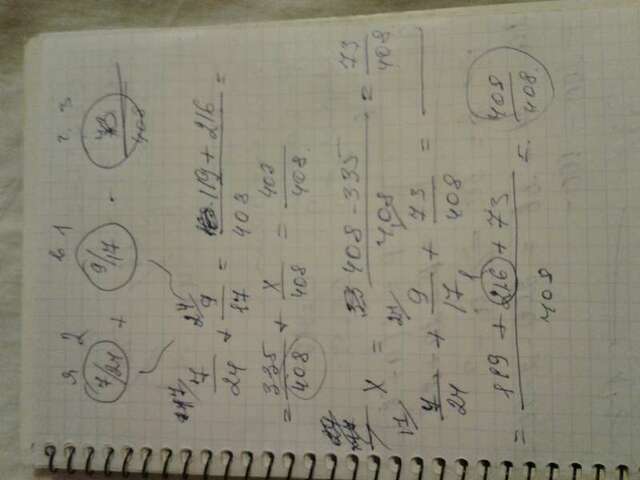 я 2 в 1 г. 3
7/24 + 9/17 . 73/408
17 24
7/24 + 9/17 = 119 + 216 / 408 =
= 335/408 + x/408 = 408/408.
x = 408 - 335 / 408 = 73/408
17 24 1
7/24 + 9/17 + 73/408 =
= 119 + 216 + 73 / 408 = 408/408.